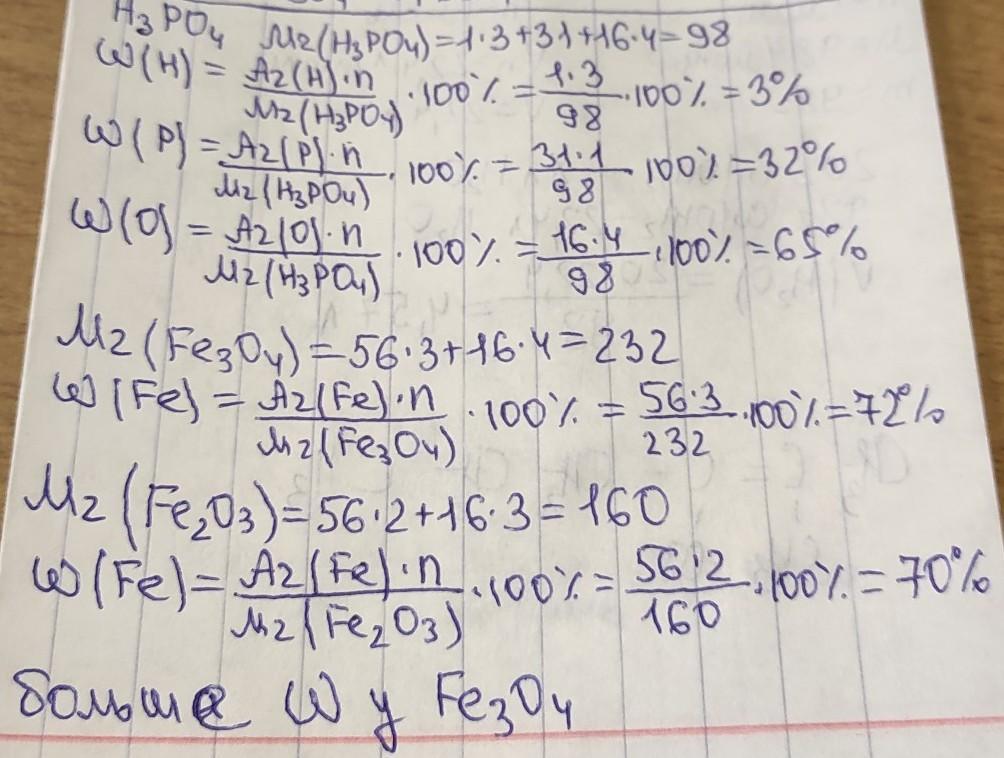 H₃PO₄ Mr(H₃PO₄)=1·3+31+16·4=98
ω(H) = Ar(H)·n / Mr(H₃PO₄) ·100% = 1·3 / 98 ·100% = 3%
ω(P) = Ar(P)·n / Mr(H₃PO₄) · 100% = 31·1 / 98 100% = 32%
ω(O) = Ar(O)·n / Mr(H₃PO₄) ·100% = 16·4 / 98 ·100% = 65%
Mr(Fe₃O₄)=56·3+16·4=232
ω(Fe) = Ar(Fe)·n / Mr(Fe₃O₄) ·100% = 56·3 / 232 ·100% = 72%
Mr(Fe₂O₃)=56·2+16·3=160
ω(Fe) = Ar(Fe)·n / Mr(Fe₂O₃) ·100% = 56·2 / 160 ·100% = 70%
больше ω у Fe₃O₄